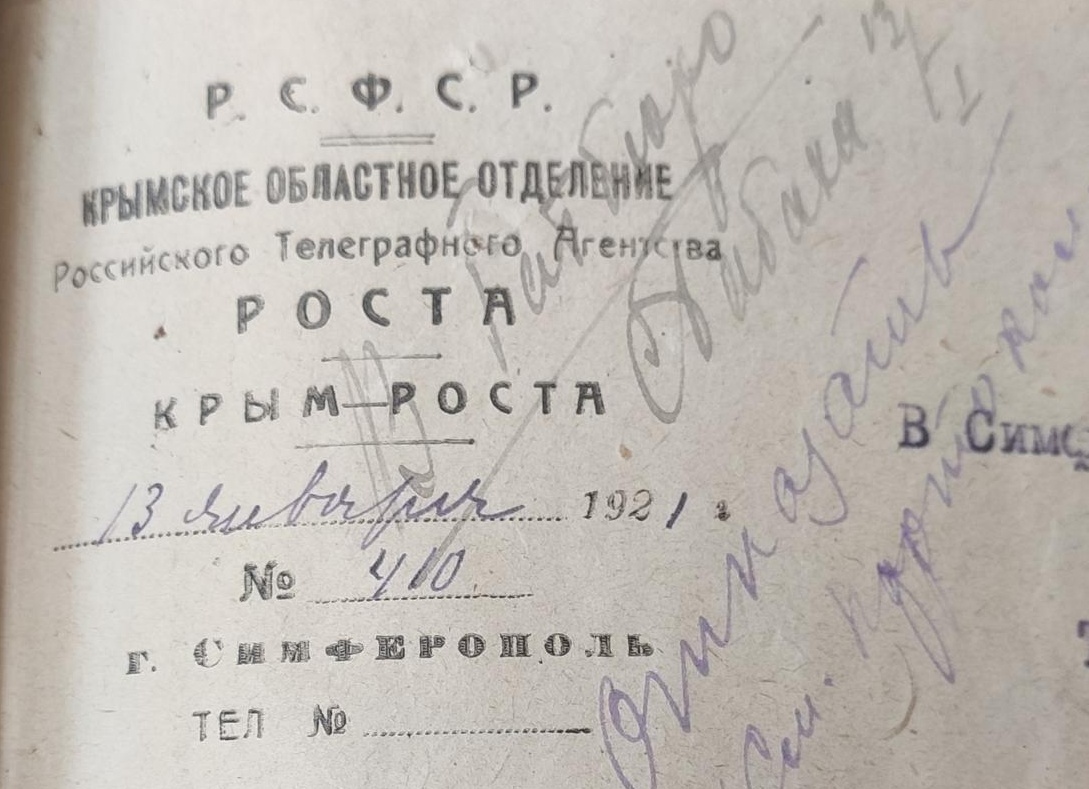 Р. С. Ф. С. Р.
КРЫМСКОЕ ОБЛАСТНОЕ ОТДЕЛЕНИЕ
Российского Телеграфного Агентства
РОСТА
КРЫМ—РОСТА
13 января 1921 г
№ 410
г. СИМФЕРОПОЛЬ
ТЕЛ №
В
Отказать
См. протокол